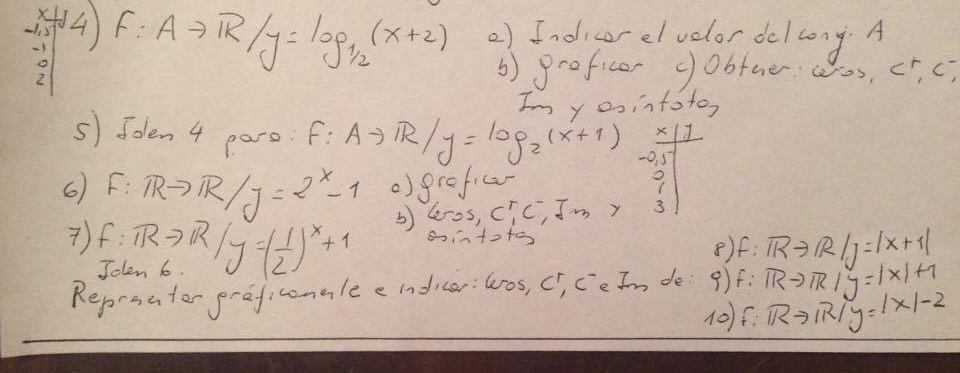 x | y
-1,5
-1
0
2
4) F: A → ℝ / y = log₁/₂ (x+2) a) Indicar el valor del conj. A
b) graficar c) Obtener: ceros, C⁺, C⁻,
Im y asíntotas
5) Iden 4 para: F: A → ℝ / y = log₂ (x+1)
x | y
-0,5
0
1
3
6) F: ℝ → ℝ / y = 2ˣ - 1 a) graficar
b) Ceros, C⁺, C⁻, Im y
asíntotas
7) F: ℝ → ℝ / y = (1/2)ˣ + 1
Iden 6.
Representar gráficamente e indicar: Ceros, C⁺, C⁻ e Im de:
8) F: ℝ → ℝ / y = |x+1|
9) F: ℝ → ℝ / y = |x|+1
10) F: ℝ → ℝ / y = |x|-2